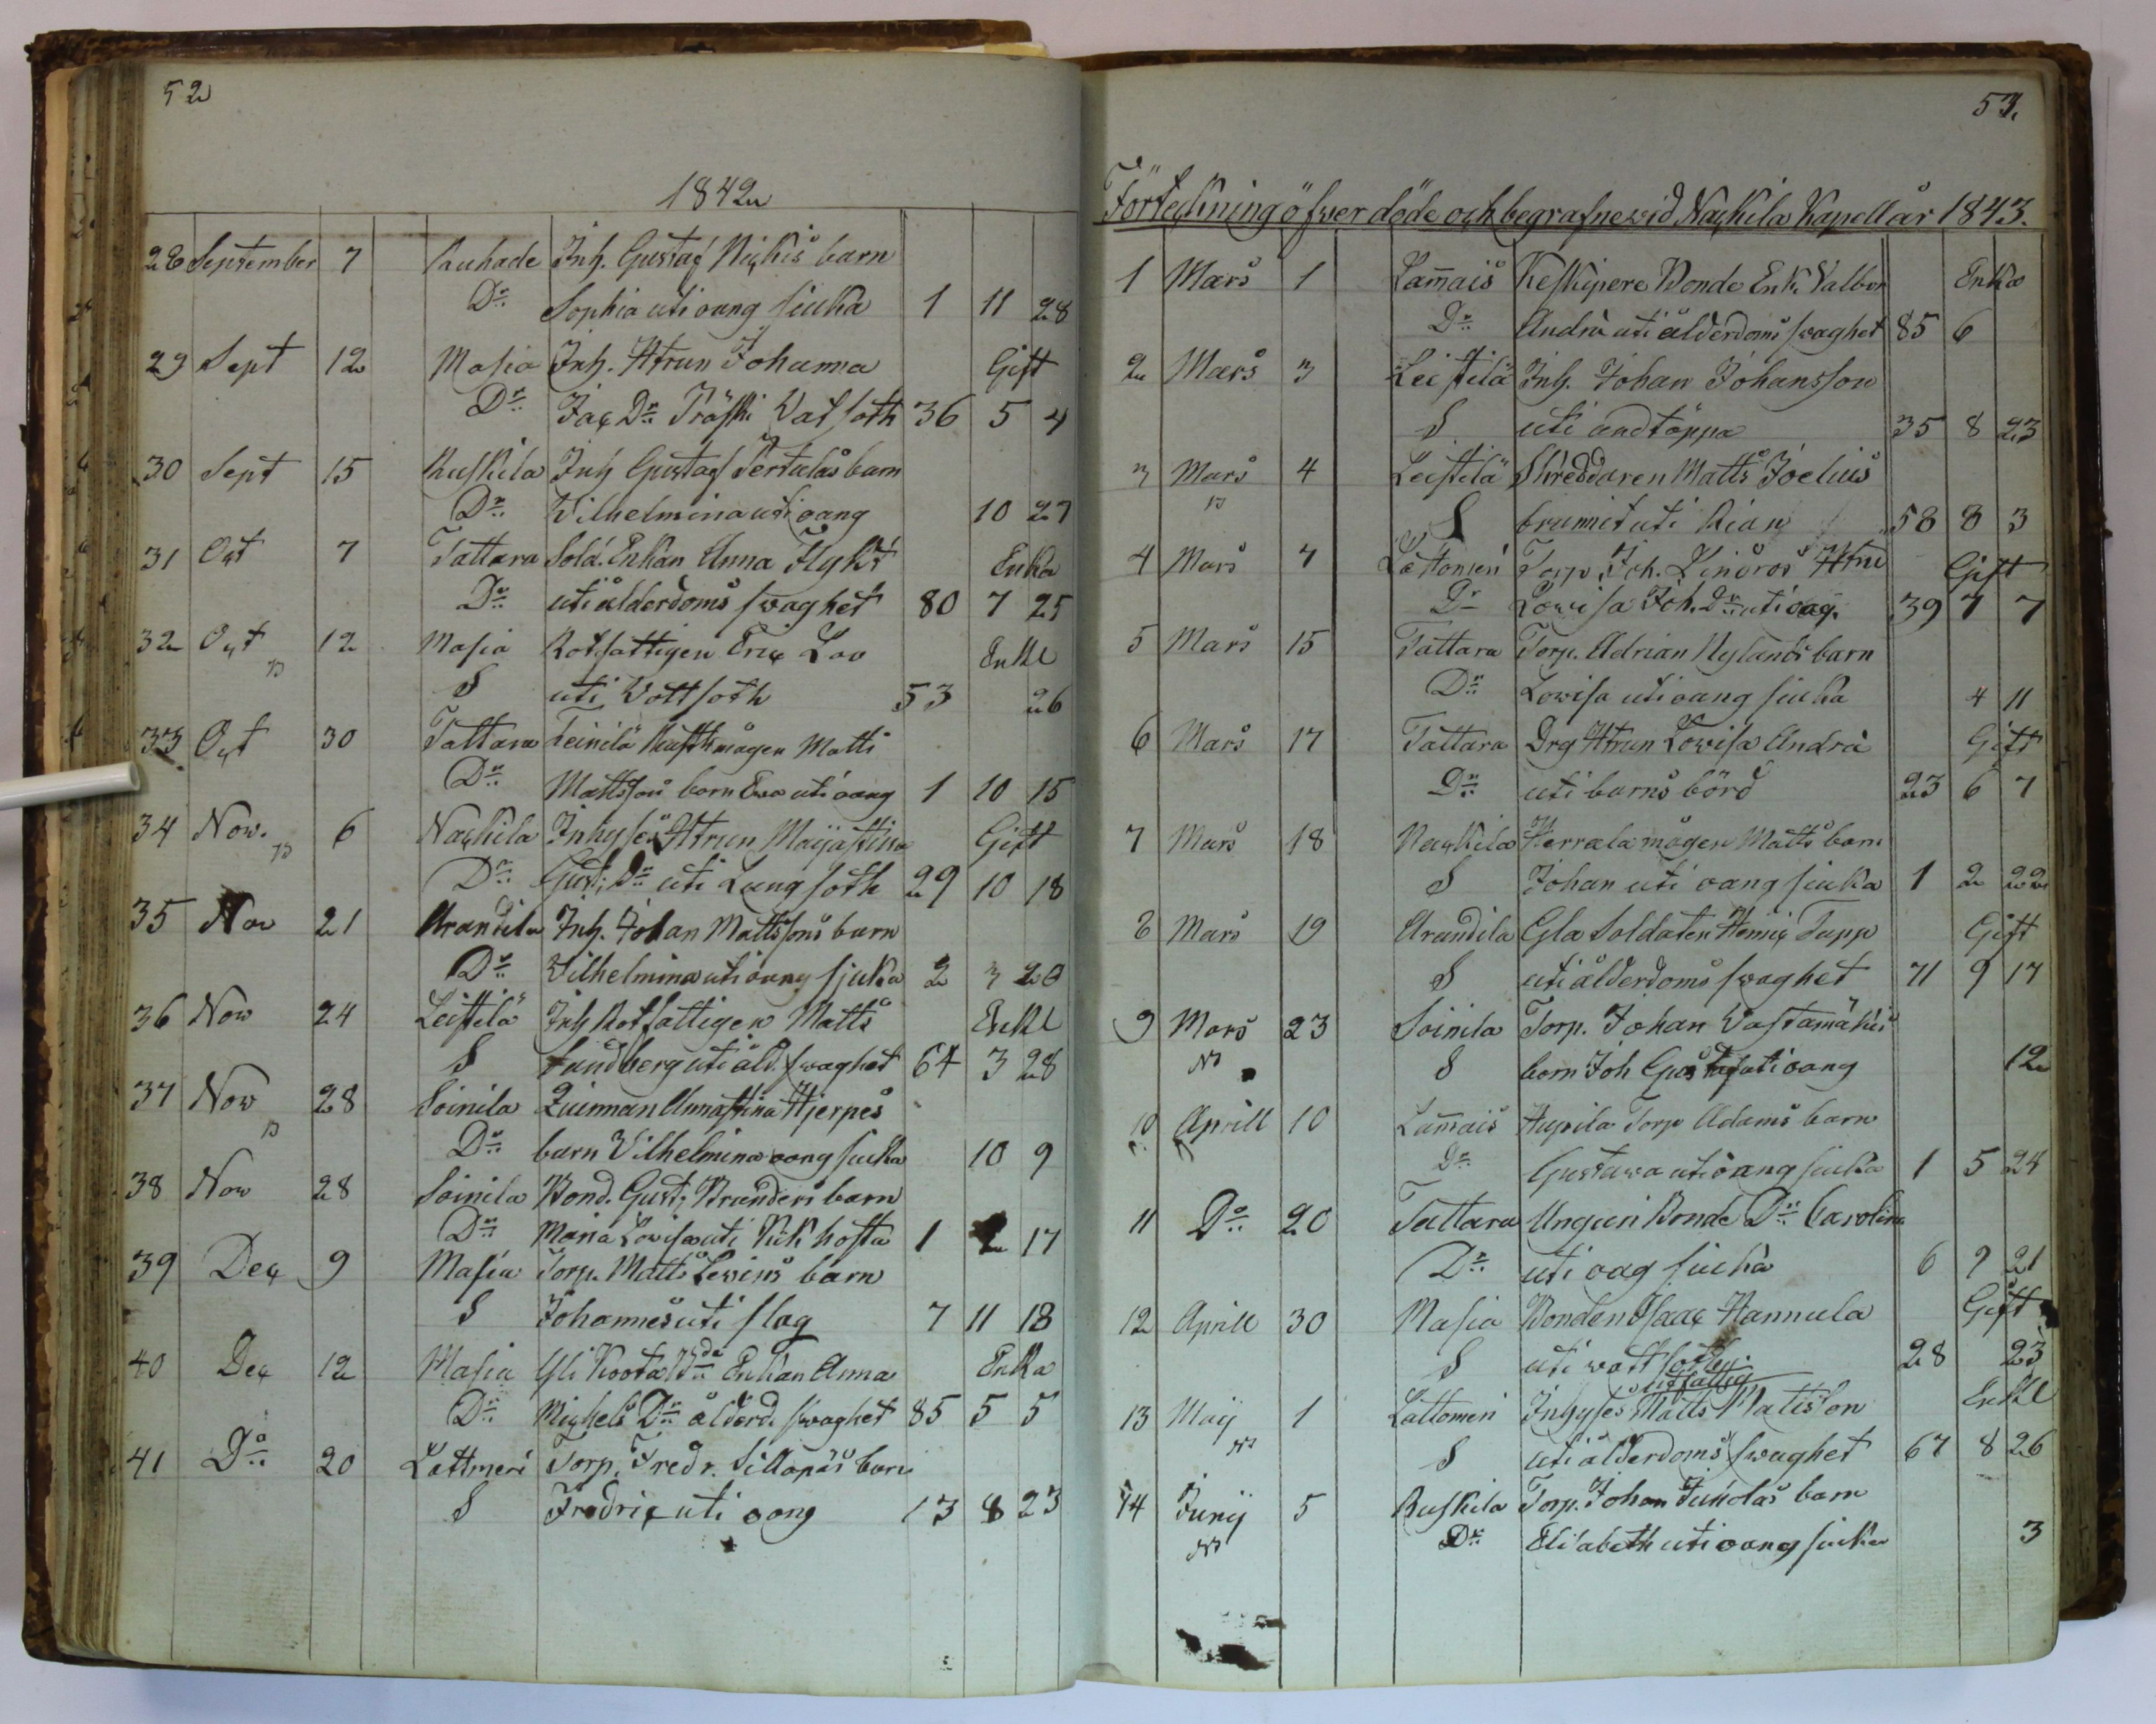 52
1842
28 September 7 Kuhade Inh. Gustaf Nickis barn
Dr. Sophia uti oang siuka 1 11 28
29 Sept 12 Masia Inh. Htrun Johanna Gift
Dr. Jac Dr. Träski Vatsoth 36 5 4
30 Sept 15 Ruskila Inh Gustaf Pertulas barn
Dr. Wilhelmina uti oang 10 27
31 Oct 7 Tattara Solд. Enkan Anna Flykt Enka
Dr. uti ålderdoms swaghet 80 7 25
32 Oct 12 Masia Rotfattigen Eric Loo Enkl
S uti Vottsoth 53 26
33 Oct 30 Tattara Teinilä Rusthmågen Matti
Dr. Mattssons barn Ewa uti oang 1 10 15
34 Now. 6 Nackila Inhyses Htrun Maijastina Gift
Dr. Gust. Dr. uti Lungsoth 29 10 18
35 Nov 21 Arandila Inh. Johan Mattssons barn
Dr. Wilhelmina uti oang sjuka 2 3 20
36 Now 24 Leistilä Inh Rotfattigen Matts Enkl
S Lundberg uti åld. swaghet 64 3 28
37 Now 28 Soinila Quinnan Annastina Hjerpes
Dr. barn Vilhelmina oang siuka 10 9
38 Now 28 Soinila Bond. Gust. Branders barn
Dr. Maria Lovisa uti Kikhosta 1 2 17
39 Dec 9 Masia Torp. Matts Lewins barn
S Johannes uti slag 7 11 18
40 Dec 12 Masia Yli Koota Bde Enkan Anna Enka
Dr. Michels Dr. ålderd. swaghet 85 5 5
41 Do. 20 Lattmeri Torp. Fredr. Sillapäs barn
S Fredric uti oang 13 8 23
53.
Förteckning öfwer döde och begrafne wid Nackila Kapell år 1843.
1 Mars 1 Lammais Keskipere Bonde Enk. Valbor Enka
Dr. Andrä uti ålderdoms swaghet 85 6
2 Mars 3 Leistilä Inh. Johan Johansson
S uti andtäppa 35 8 23
3 Mars 4 Leistilä Skreddaren Matts Joelius
S brunnit uti Rian 58 8 3
4 Mars 7 Lattomeri Torp. Joh. Linoros Htru Gift
Dr Lowisa Joh. Dr. uti oag. 39 7 7
5 Mars 15 Tattara Torp. Adrian Nylands barn
Dr. Lowisa uti oang siuka 4 11
6 Mars 17 Tattara Drg Htrun Lowisa Andrä Gift
Dr. uti barns börd 23 6 7
7 Mars 18 Nackila Herrala mågen Matts barn
S Johan uti oang siuka 1 2 22
8 Mars 19 Arandila Gla Soldaten Henric Tupp Gift
S uti ålderdoms swaghet 71 9 17
9 Mars 23 Soinila Torp. Johan Vastamäkis
S barn Joh Gustaf uti oang 12
10 Aprill 10 Lammais Hupila Torp Adams barn
Dr. Gustawa uti oang siuka 1 5 24
11 Do. 20 Tattara Ungein Bonde Dr. Carolina
Dr. uti oag siuka 6 9 21
12 Aprill 30 Masia Bonden Isaac Hannula Gift
S uti wattsoten 28 23
13 Maij 1 Lattomeri Inhyses Matts Matisson Enkl
S uti ålderdoms swaghet 67 8 26
14 Junij 5 Ruskila Torp. Johan Juholas barn
Dr. Elisabeth uti oang siuka 3